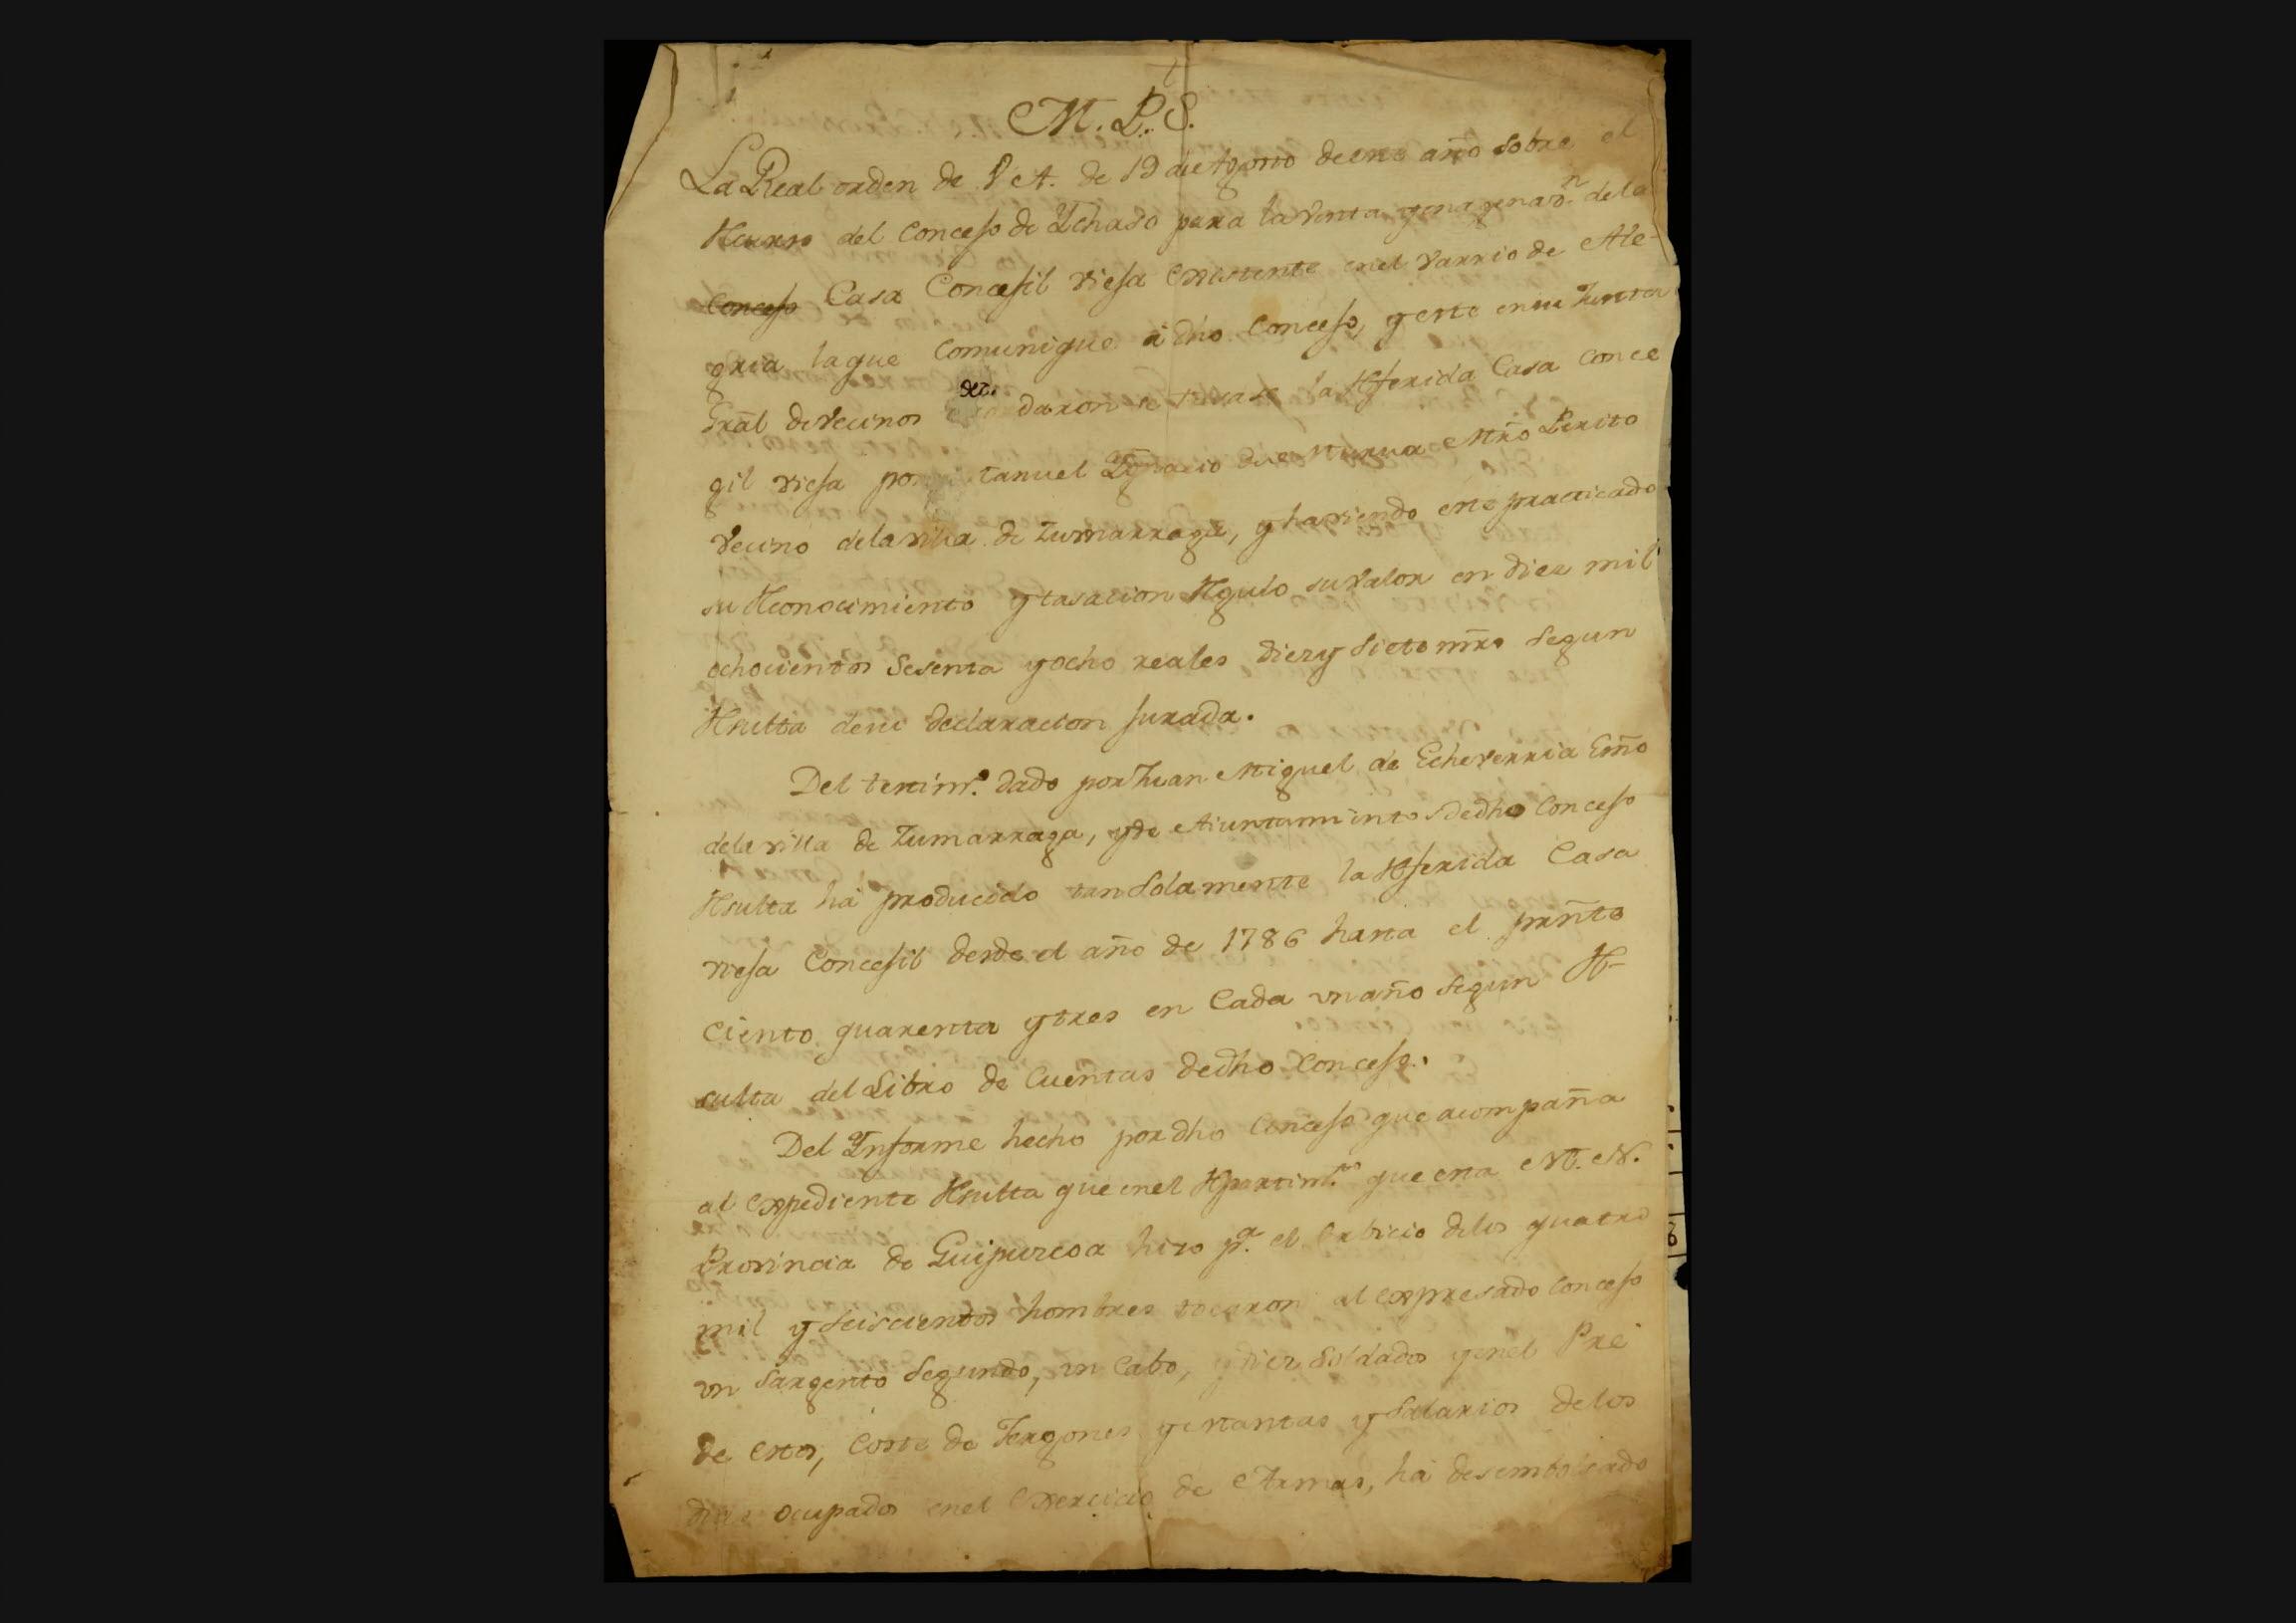 M. P. S.
La Real orden de V. A. de 19 de Agosto de este año sobre el
Recurso del Concejo de Ychaso para la Venta y enagenaon. de la
Concejo Casa Concejil vieja existente en el varrio de Ale-
gria la que Comunique à dho Concejo, y este en su Junta
Gral de Vecinos daron se tasase la referida Casa Conce
gil vieja por Manuel Ygnacio de Murua Mro Perito
Vecino de la villa de Zumarraga, y haviendo este practicado
su Reconocimiento y tasacion Regulo su valor en diez mil
ochocientos Sesenta y ocho reales diez y siete mrs segun
Resulta de su declaracion jurada.
Del testimo. dado por Juan Miguel de Echeverria Esno
de la villa de Zumarraga, y de Aiuntamientos de dho Concejo
Resulta hà producido tan Solamente la referida Casa
vieja Concejil desde el año de 1786 hasta el presñte
Ciento quarenta y tres en Cada un año segun Re-
sulta del Libro de Cuentas de dho Concejo.
Del Ynforme hecho por dho Concejo que acompaña
al expediente Resulta que en el Repartimto. que esta M. N.
Provincia de Guipuzcoa hizo pa. el servicio de los quatro
mil y Seiscientos hombres tocaron al expresado Concejo
un Sargento Segundo, un Cabo, y diez Soldados y en el Prè
de estos, Coste de Jergones y Mantas y Salarios de los
dias ocupados en el Exercicio de Armas, hà desembolsado